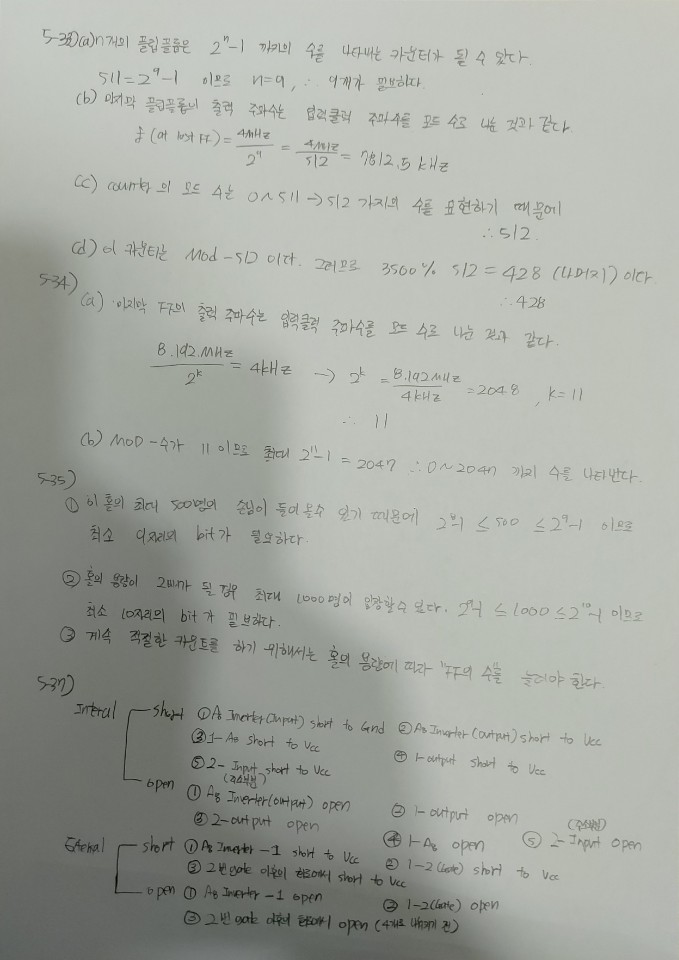 5-33)(a) n개의 플립플롭은 2^n-1 까지의 수를 나타내는 카운터가 될 수 있다.
511=2^9-1 이므로 n=9, ∴ 9개가 필요하다.
(b) 마지막 플립플롭의 출력 주파수는 입력클럭 주파수를 모드 수로 나눈 것과 같다.
f (at last FF) = 4MHz/2^9 = 4MHz/512 = 7812.5 kHz
(c) counter의 모드 수는 0~511 → 512 가지의 수를 표현하기 때문에
∴ 512.
(d) 이 카운터는 Mod-512 이다. 그러므로 3500% 512 = 428 (나머지) 이다
∴ 428
5-34)
(a) 마지막 FF의 출력 주파수는 입력클럭 주파수를 모드 수로 나눈 것과 같다.
8.192MHz/2^k = 4kHz → 2^k = 8.192MHz/4kHz = 2048, k=11
∴ 11
(b) MOD-수가 11 이므로 최대 2^11-1 = 2047 ∴ 0~2047 까지 수를 나타낸다.
5-35)
① 이 홀의 최대 500명의 손님이 들어올수 있기 때문에 2^8-1 ≤ 500 ≤ 2^9-1 이므로
최소 9자리의 bit가 필요하다.
② 홀의 용량이 2배가 될 경우 최대 1000명이 입장할수 있다. 2^9-1 ≤ 1000 ≤ 2^10-1 이므로
최소 10자리의 bit가 필요하다.
③ 계속 적절한 카운트를 하기 위해서는 홀의 용량에 따라 FF의 수를 늘려야 한다.
5-37)
Interal short ① A8 Inverter(Input) short to Gnd ② A8 Inverter(output) short to Vcc
③ 1-A8 short to Vcc ④ 1-output short to Vcc
⑤ 2-Input short to Vcc
(주소부분)
open ① A8 Inverter(output) open ② 1-output open
③ 2-output open ④ 1-A8 open ⑤ 2-Input open
(주소부분)
External short ① A8 Inverter-1 short to Vcc ② 1-2(Gate) short to Vcc
③ 2번gate 이후의 short to Vcc
open ① A8 Inverter-1 open ② 1-2(Gate) open
③ 2번gate 이후의 open (4개로 나눠지기 전)